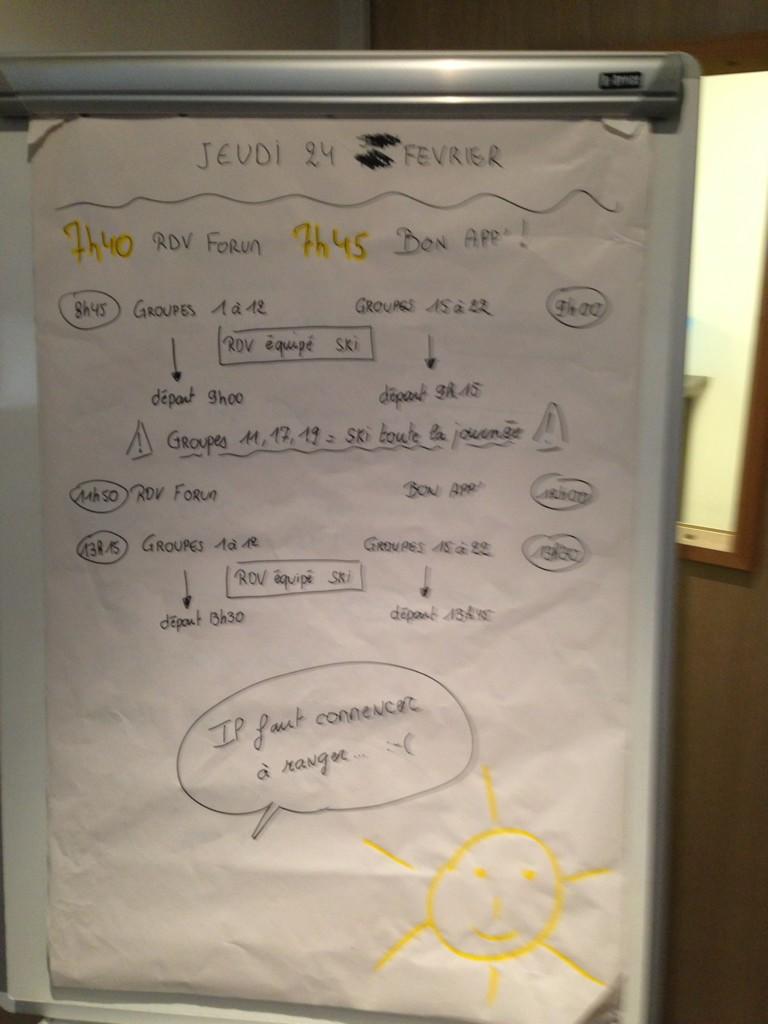 JEUDI 24 FEVRIER
7h40 RDV FORUM 7h45 BON APP'!
8h45 GROUPES 1 à 12 GROUPES 15 à 22 9h00
RDV équipé SKi
départ 9h00 départ 9h15
! GROUPES 11, 17, 19 = SKi toute la journée !
11h50 RDV FORUM BON APP' 12h00
13h15 GROUPES 1 à 12 GROUPES 15 à 22 13h30
RDV équipé SKi
départ 13h30 départ 13h45
Il faut commencer
à ranger... :-(